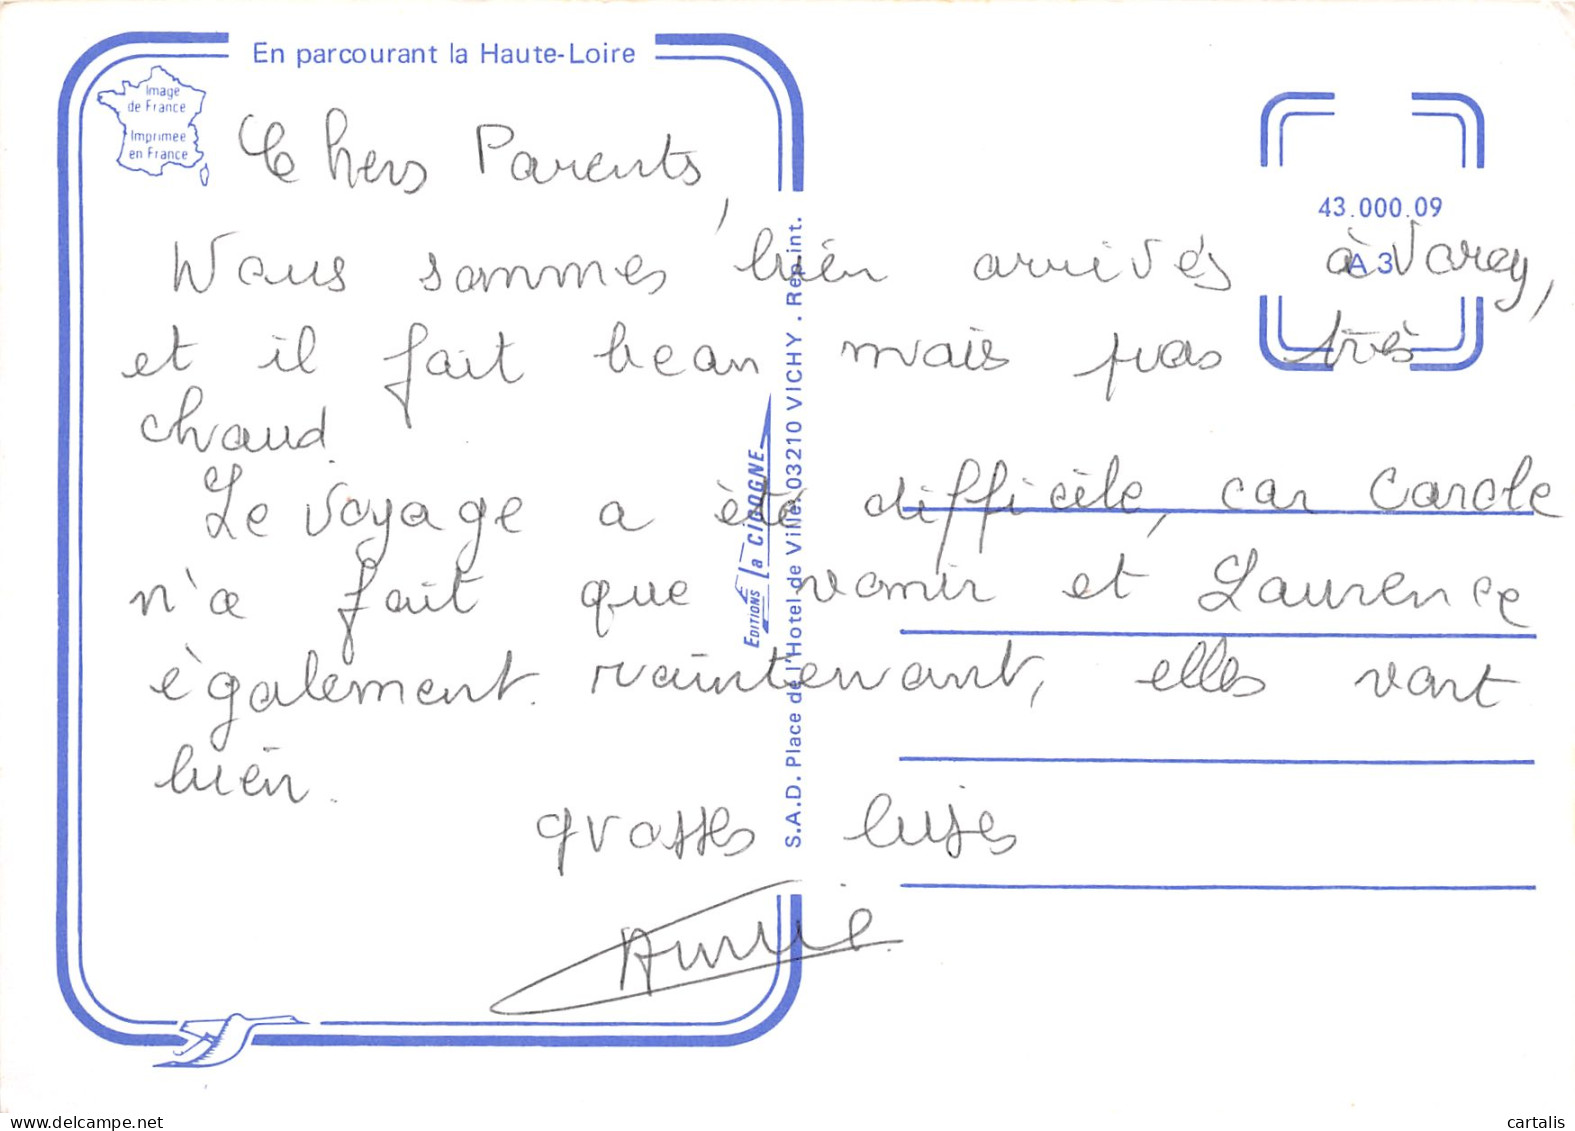 En parcourant la Haute-Loire
Image
de France
Imprimée
en France
43.000.09
A 3
Chers Parents,
Nous sommes bien arrivés à Vorey,
et il fait beau mais pas très
chaud.
Le voyage a été difficile, car Carole
n'a fait que vomir et Laurence
également. maintenant, elles vont
bien.
grosses bises
EDITIONS La CIGOGNE
S.A.D. Place de l'Hôtel de Ville. 03210 VICHY . Rep.int.
cartalis